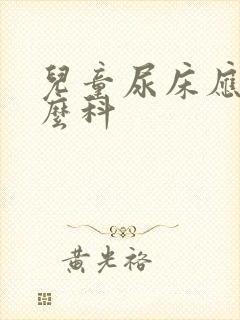 兒童尿床應
麼科
黃光裕